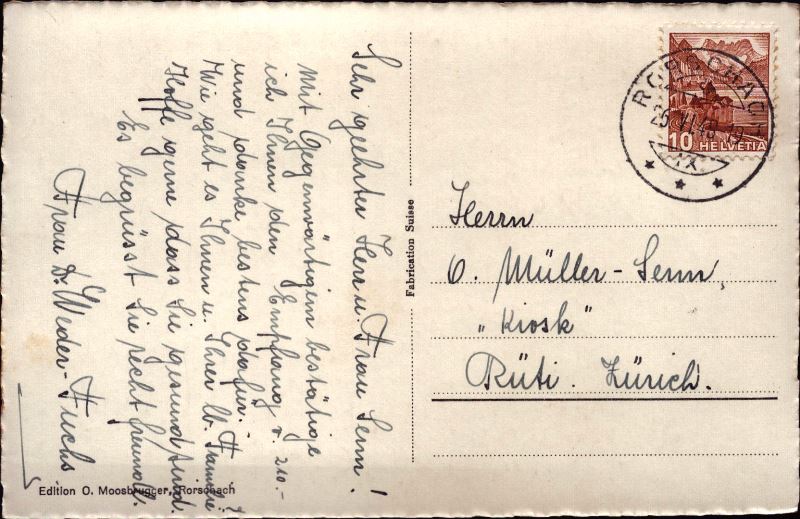 Sehr geehrten Herr u. Frau Senn!
Mit Gegenwärtigem bestätige
ich Ihnen den Empfang v. 210.-
und danke bestens dafür.-
Wie geht es Ihnen u. Ihrer lb. Familie?
Hoffe gerne dass Sie gesund sind.
Es begrüsst Sie recht freundl.
Frau Dr. Weder-Fuchs
Edition O. Moosbrugger, Rorschach
Fabrication Suisse
RORSCHACH
10 HELVETIA
Herrn
O. Müller-Senn,
„Kiosk"
Rüti. Zürich.